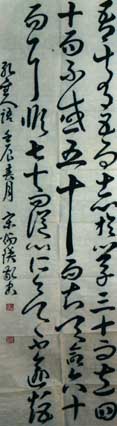 吾十有五而志於学三十而立四
十而不惑五十而知天命六十
而耳顺七十而从心所欲不逾矩
孔圣人语 壬辰春月 宋